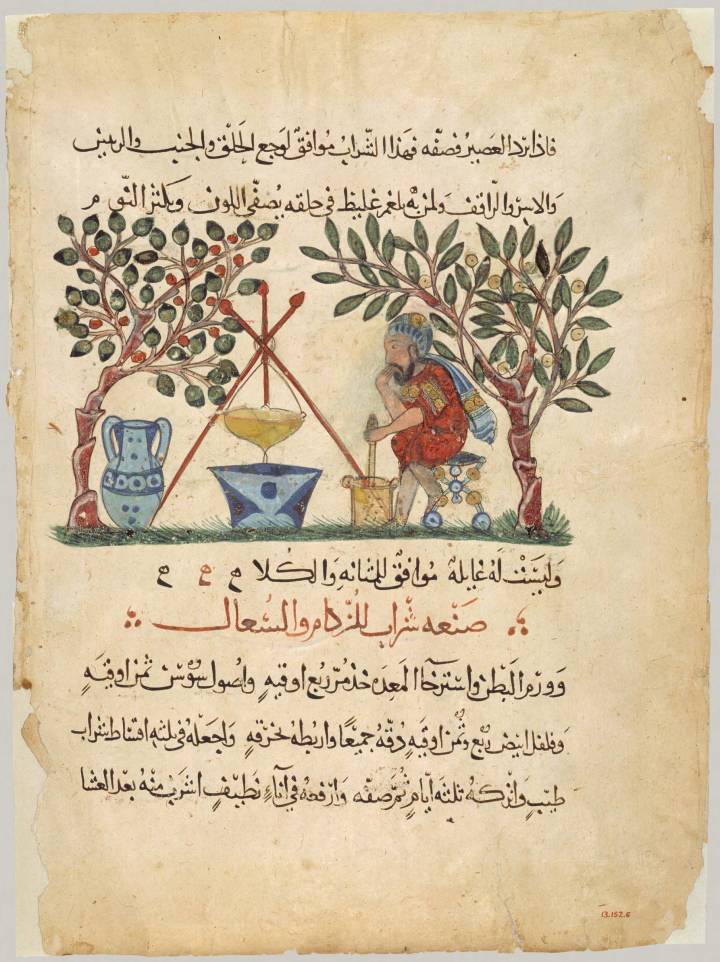 فاذا برد العصير فصفه فهذا الشراب موافق لوجع الحلق والجنب والريتين
والابر والراقف ولمن به بلغم غليظ فى حلقه يصفى اللون ويكثر النوم م
وليست له غايله موافق للمثانه والكلا ح ح ح
صنعه شراب للزكام والسعال
وورم البطن واسترخا المعده خذ مر ربع اوقيه واصول سوس ثمن اوقيه
وفلفل ابيض ربع وثمن اوقيه دقه جميعا واربطه بخرقه واجعله فى ثلثه اقساط شراب
طيب واتركه ثلثه أيام ثم صفه وارفعه فى اناء نظيف اشرب منه بعد العشا
13.152.6